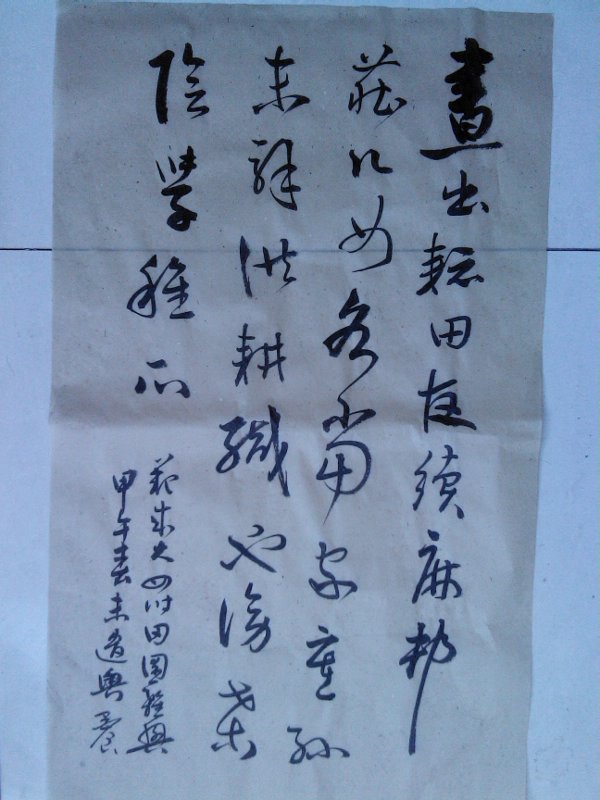 晝出耘田夜績麻村
莊兒女各當家童孫
未解供耕織也傍桑
陰學種瓜
范成大四時田園雜興
甲午春末道興